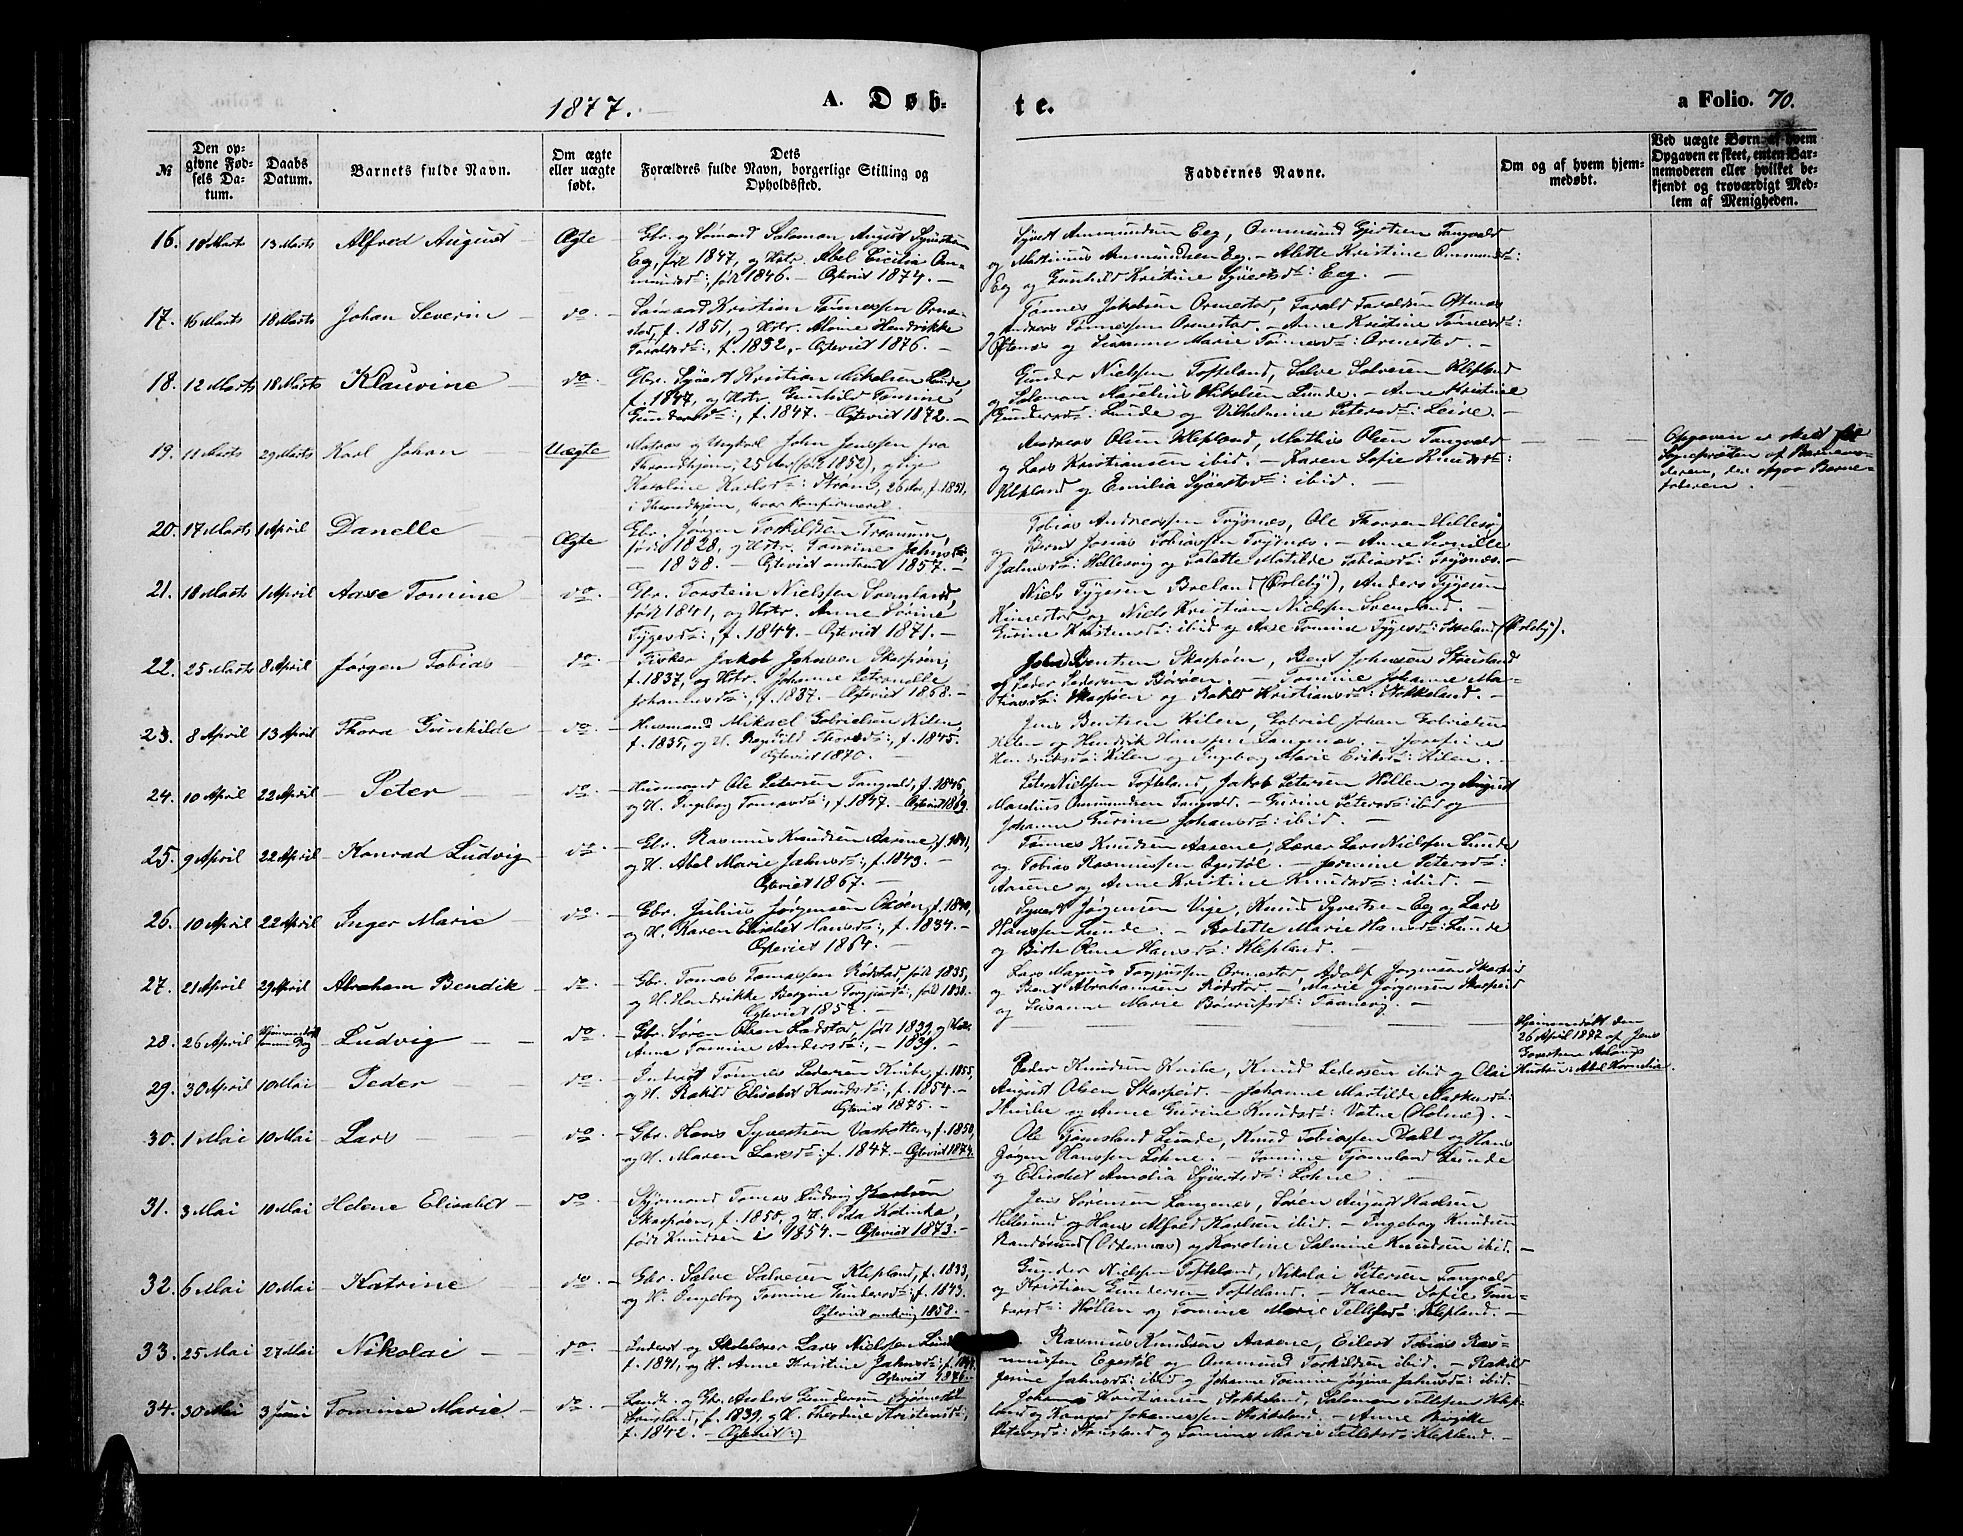 1877.
A. Døb-
te.
a Folio. 70.
№
Den op-
givne Fød-
sels Da-
tum.
Daabs
Datum.
Barnets fulde Navn.
Om ægte
eller uægte
født.
Dets
Forældres fulde Navn, borgerlige Stilling og
Opholdssted.
Faddernes Navne.
Om og af hvem hjem-
medøbt.
Ved uægte Børn: af hvem
Opgaven er skeet, enten Bar-
nemoderen eller hvilket be-
kjendt og troværdigt Med-
lem af Menigheden.
16. 10 Marts 13 Marts Alfred August Ægte Gbr. og Sømand Salomon August Syvertsen
Eg, født 1847, og Hstr. Abel Cicilia
født 1846. - Ægteviet 1874. -
Syvert Aanmundsen Eeg, Tangvald
og Mathinius Eeg. - Alette Kristine
Eeg og Gunhild Kristine Syvertsd: Eeg. -
17. 16 Marts 18 Marts Johan Severin do. Sømand Kristian Tønnessen Orme-
stad, f. 1851, og Hstr. Hendrikke
Taraldsd:, f. 1852, - Ægteviet 1876. -
Tønnes Jakobsen Ormestad, Tarald Taraldsen Oftenes
Andreas Tønnessen Ormestad. - Anne Kristine Tønnesd:
Oftenes og Susanne Marie Tønnesd: Ormestad. -
18. 12 Marts 18 Marts Klauvine do. Gbr. Syvert Kristian Mikelsen Lunde,
f. 1847, og Hstr. Gunhild Tomine
Gundersd:, f. 1847. - Ægteviet 1872. -
Gunder Nielsen Tofteland, Salve Salvesen Klepland
og Salomon Mikelsen Lunde. - Anne Kristine
Gundersd: Lunde og Vilhelmine Petersd: Leire. -
19. 11 Marts 29 Marts Karl Johan Uægte Matros og Ungkarl John Jenssen fra
Throndhjem, 25 Aar (født 1852), og Pige
Karoline Karlsd: Strøm, 26 Aar, f. 1851,
i Throndhjem, hvor konfirmeret.
Andreas Olsen Klepland, Mathis Olsen Tangvald
og Lars Kristiansen ibid. - Karen Sofie Knudsd:
Klepland og Emilia Syvertsd: ibid. -
Opgaven er skeet til
Sognepræsten af Barnemo-
deren, der opgav Barne-
faderen. -
20. 17 Marts 1 April Danelle Ægte Gbr. Jørgen Torkildsen
født 1828, og Hstr. Tomine Jahnsd:
- 1838. - Ægteviet omtrent 1857. -
Tobias Andreassen Trysnes, Ole Thorsen Hellesvig
og Bernt Josias Tobiassen Trysnes. - Anne Pernille
Jahnsd: Hellesvig og Talette Matilde Tobiasd: Trysnes. -
21. 18 Marts 1 April Aase Tomine do. Gbr. Torstein Nielssen
født 1841, og Hstr. Anne Sørine
Tygesd:, f. 1844. - Ægteviet 1871. -
Niels Tygesen Breland (Øvlebø), Anders Tygesen
og Niels Kristian Nielssen
Gurine Kristensd: ibid og Aase Tomine Tygesd: (Øvlebø).
22. 25 Marts 8 April Jørgen Tobias do. Fisker Jakob Johnsen Skarpøen,
f. 1837, og Hstr. Johanne Petronelle
Johannesd:, f. 1837. - Ægteviet 1868. -
John Bentsen Skarpøen, Bent Johnsen Stousland
og Peder Pedersen Borøen. - Tomine Johanne Ma-
thiasd: Skarpøen og Rakild Kristiansd: Stokkeland. -
23. 8 April 13 April Thora Gunhilde do. Husmand Mikael Gabrielsen Kilen
f. 1835, og H. Ragnild Thorsd:, f. 1845.
Ægteviet 1870. -
Jens Bentsen Kilen, Gabriel Johan Gabrielsen
Kilen og Hendrik Hanssen Langenes. - Josefine
Hendriksd: Kilen og Ingeborg Marie Eriksd: Kilen. -
24. 10 April 22 April Peter do. Husmand Ole Petersen Tangvald, f. 1846,
og H. Ingeborg Tomasd:, f. 1847. - Ægteviet 1869.
Peter Nielssen Tofteland, Jakob Petersen Höllen og August
Mardius Tangvald. - Gurine Petersd: ibid og
Johanne Gurine Johansd: ibid. -
25. 9 April 22 April Konrad Ludvig do. Gbr. Rasmus Knudsen Aasene, f. 1841,
og H. Abel Marie Jahnsd:, f. 1843. -
Ægteviet 1867. -
Tønnes Knudsen Aasene, Lærer Lars Nielssen Lunde
og Tobias Rasmussen Egestøl. - Jensine Petersd:
Aasene og Anne Kristine Knudsd: ibid. -
26. 10 April 22 April Inger Marie do. Gbr. Julius Jørgensen f. 1840,
og H. Karen Elisabet Hansd:, f. 1834. -
Ægteviet 1864. -
Syvert Jørgensen Vige, Knud Syverts- Eg og Lars
Hanssen Lunde. - Bolette Marie Hansd: Lunde
og Birte Oline Hansd: Klepland. -
27. 21 April 29 April Abraham Bendik do. Gbr. Tomas Tomassen Rødstad, født 1835,
og H. Hendrikke Bergine Torgjusd:, født 1838. -
Ægteviet 1857. -
Lars Magnus Torgjussen Ormestad, Adolf Jørgensen Skarpeid
og Bent Abrahamsen Rødstad. - Marie Jørgensen Skarpeid
og Susanne Marie -
28. 26 April Ludvig do. Gbr. Søren Olsen født 1839, og Hstr.
Anne Tomine Andersd:, - 1839. -
Hjemmedøbt den
26 April 1877 af Jens
Hustru: Abel Kornelia.
29. 30 April 10 Mai Peder do. Inderst Tønnes Pedersen Knibe, f. 1855,
og H. Rakild Elisabet Knudsd:, f. 1854. -
Ægteviet 1875. -
Peder Knudsen Knibe, Knud Pedersen ibid og Olai
August Olsen Skarpeid. - Johanne Martilde
Knibe og Anne Gurine Knudsd: Vatne (Holme). -
30. 1 Mai 10 Mai Lars do. Gbr. Hans Syvertsen f. 1850,
og H. Maren Larsd:, f. 1847. - Ægteviet 1874.
Ole Tjomsland Lunde, Knud Tobiassen Dahl og Hans
Jørgen Hanssen Løhne. - Tomine Tjomsland Lunde
og Elisabet Amalia Syvertsd: Løhne. -
31. 3 Mai 10 Mai Helene Elisabet do. Styrmand Tomas Ludvig Karlsen
Skarpøen, f. 1850, og H. Ida Katinka,
født Knudsen i 1854. - Ægteviet 1873. -
Jens Sørensen Langenes, Søren August Madsen
Hellesund og Hans Alfred Karlsen ibid. - Ingeborg Knudsen
Randøsund (Oddernæs) og Karoline Salmine Knudsen ibid. -
32. 6 Mai 10 Mai Katrine do. Gbr. Salve Salvesen Klepland, f. 1833,
og H. Ingeborg Tomine Gundersd:, f. 1843.
Ægteviet omkring 1858. -
Gunder Nielsen Tofteland, Nikolai Petersen Tangvald
og Kristian Gundersen Tofteland. - Karen Sofie Gun-
dersd: Höllen og Tomine Marie Tellefsd: Klepland. -
33. 25 Mai 27 Mai Nikolai do. Inderst og Skolelærer Lars Nielssen Lunde
f. 1841, og H. Anne Kristine Jahnsd:,
Ægteviet 1876. -
Rasmus Knudsen Aasene, Eilert Tobias Ras-
mussen Egestøl og Torkildsen ibid. - Rakild
Josine Jahnsd: ibid og Johanne Tomine Jahnsd: ibid.
34. 30 Mai 3 Juni Tomine Marie do. Gbr. Anders Gundersen
Stousland, f. 1839, og H. Therdine Kristensd:,
f. 1842. - Ægteviet :)
Johannes Kristiansen Stokkeland, Salomon Tellefsen Klep-
land og Konrad Johannessen Stokkeland. - Anne Birgitte
Petersd: Stousland og Tomine Marie Tellefsd: Klepland. -